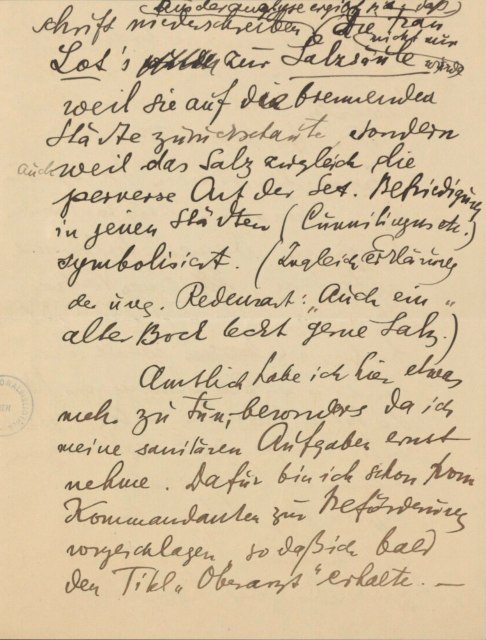 aus der Analyse ergibt sich, daß
schrift niederschreiben (die Frau
nicht nur
Lot's zur Salzsäule wurde
weil sie auf die brennenden
Städte zurückschaute sondern
auch weil das Salz zugleich die
perverse Art der Sex. Befriedigung
in jenen Städten (Cunnilingus etc.)
symbolisiert. (Zugleich Erklärung
der ung. Redensart: "Auch ein
alter Bock leckt gerne Salz.")
Amtlich habe ich hier etwas
mehr zu tun, besonders da ich
meine sanitären Aufgaben ernst
nehme. Dafür bin ich schon vom
Kommandanten zur Beförderung
vorgeschlagen, so daß ich bald
den Titel „Oberarzt" erhalte. —